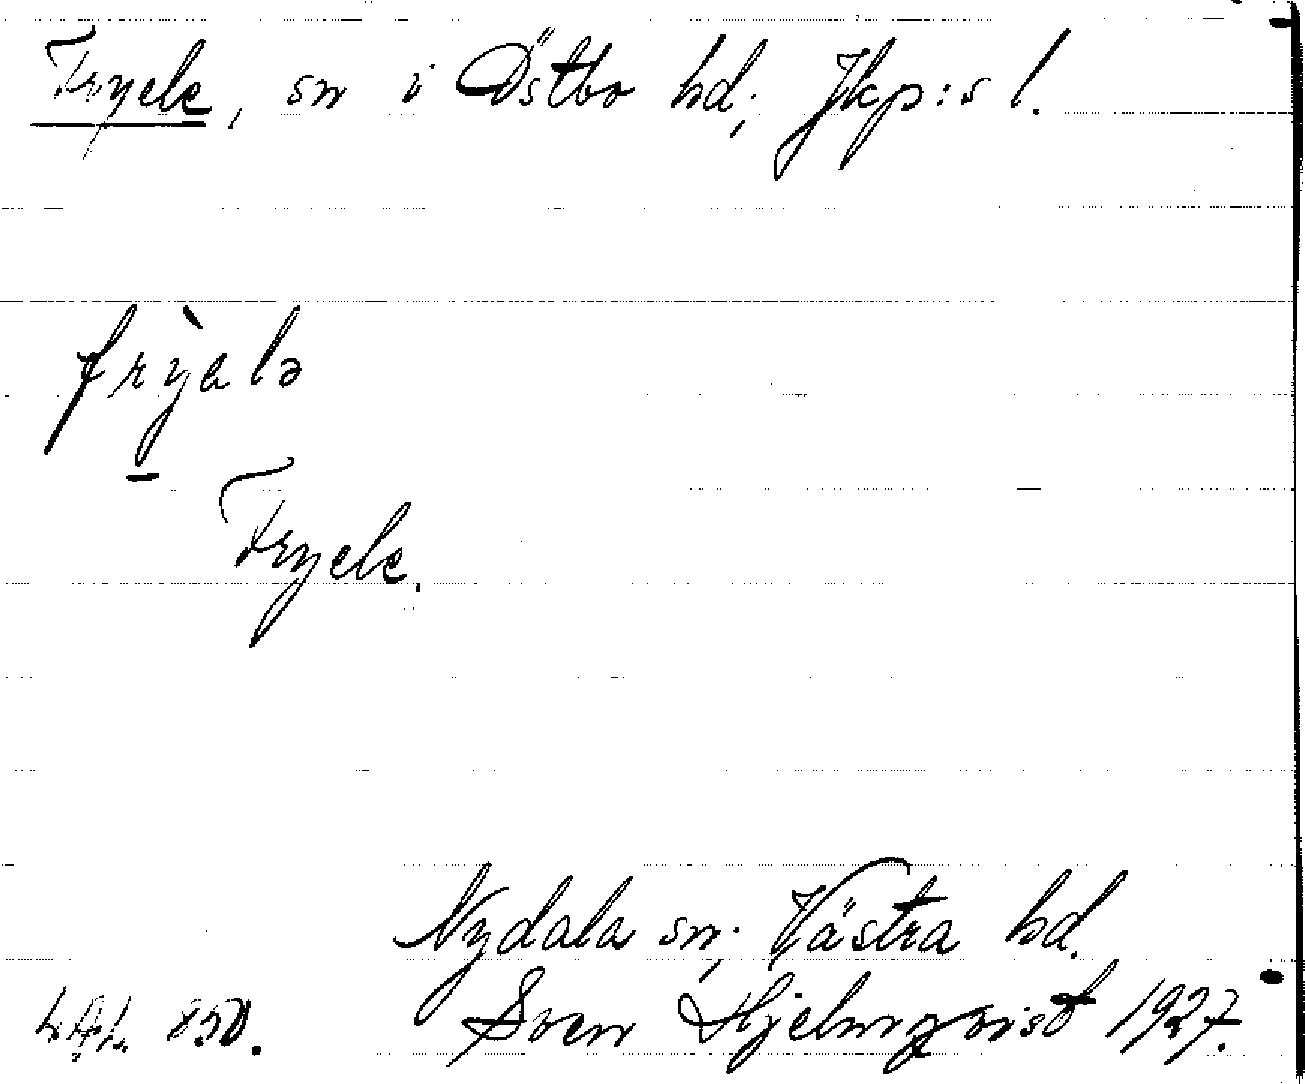 Fryele, sn i Östbo hd; Jkp:s l.
frỳalə
Fryele.
Nydala sn; Västra hd.
Sven Hjelmqvist 1927.
850.